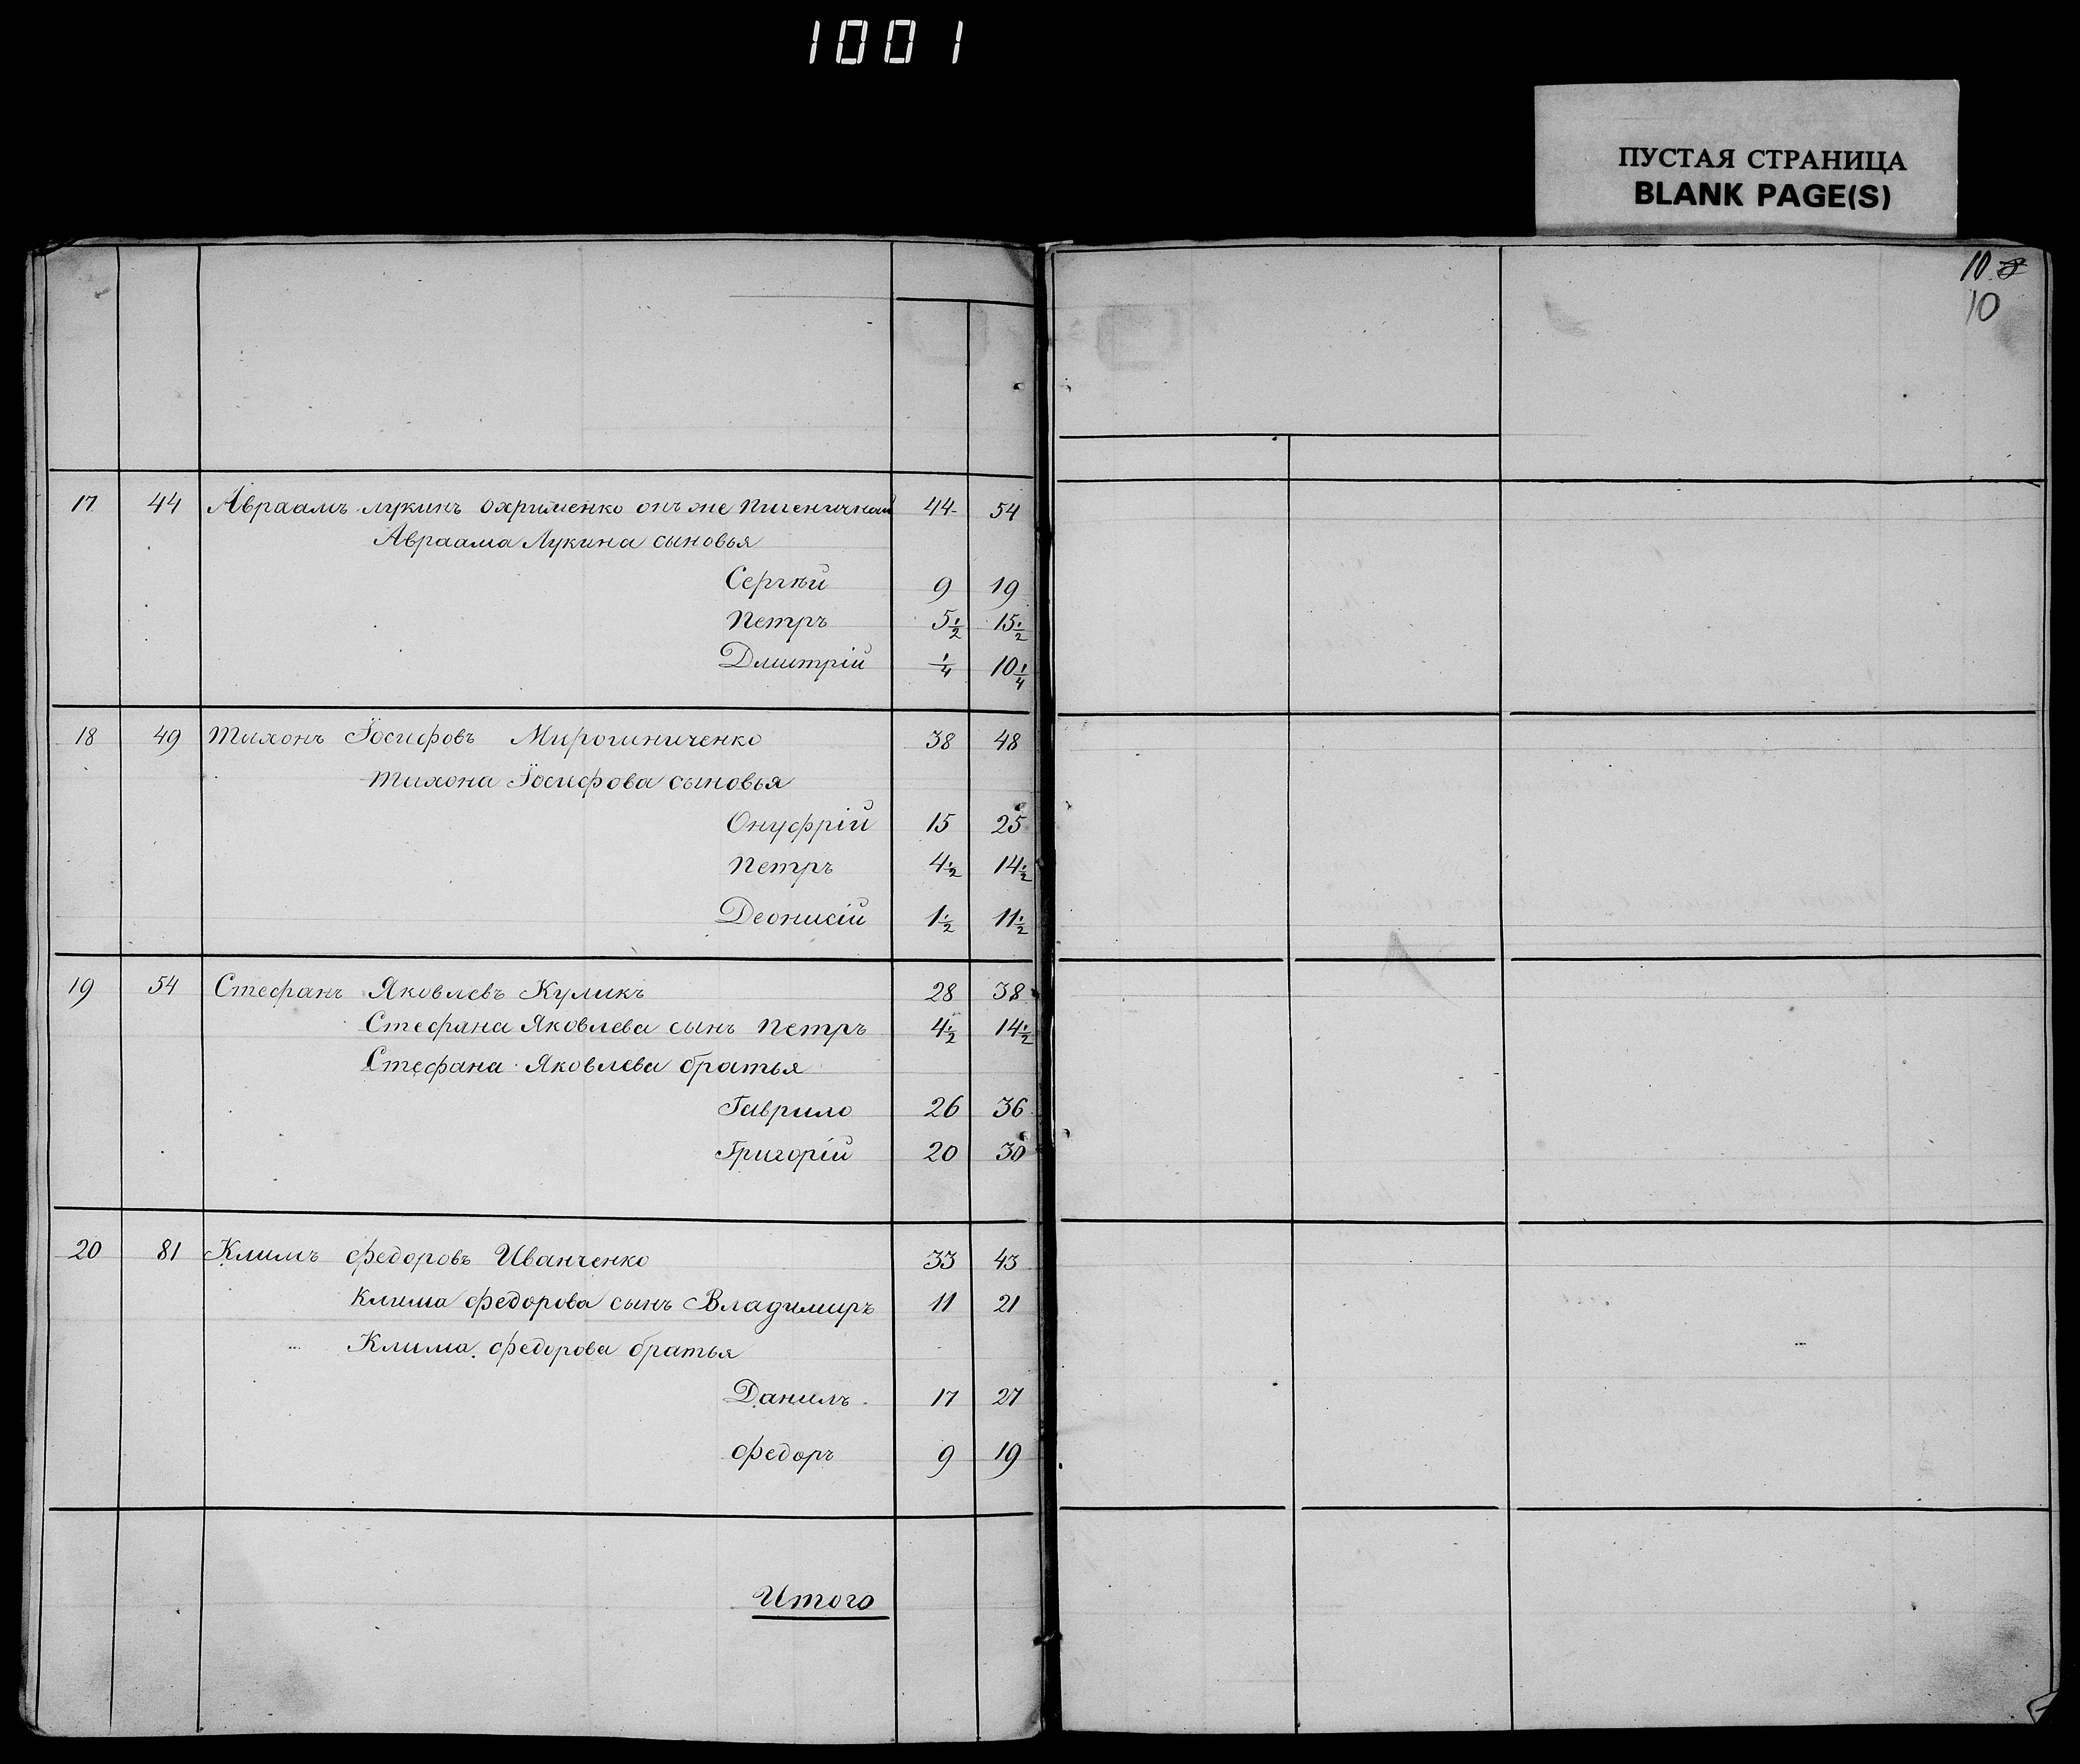 1001
ПУСТАЯ СТРАНИЦА
BLANK PAGE(S)
10
10
17 44 Авраамъ Лукинъ Охрименко онъ же Пшеничный 44 54
Авраама Лукина сыновья
Сергѣй 9 19
Петръ 5½ 15½
Дмитрій ¼ 10¼
18 49 Тихонъ Іосифовъ Мирошниченко 38 48
Тихона Іосифова сыновья
Онуфрій 15 25
Петръ 4½ 14½
Деонисій 1½ 11½
19 54 Стефанъ Яковлевъ Куликъ 28 38
Стефана Яковлева сынъ Петръ 4½ 14½
Стефана Яковлева братья
Гаврило 26 36
Григорій 20 30
20 81 Климъ Федоровъ Иванченко 33 43
Клима Федорова сынъ Владимиръ 11 21
Клима Федорова братья
Данилъ 17 27
Федоръ 9 19
Итого